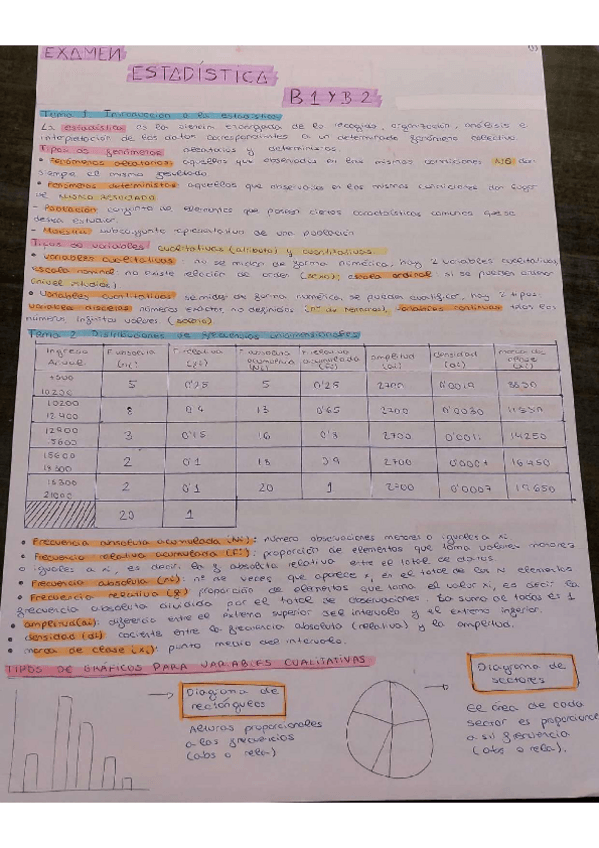 EXAMEN
ESTADÍSTICA
B1 Y B2
Tema 1 Introducción a la estadística
La estadística es la ciencia encargada de la recogida, organización, análisis e
interpretación de los datos correspondientes a un determinado fenómeno colectivo
Tipos de fenómenos aleatorios y deterministas.
• Fenómenos aleatorios: aquellos que observados en las mismas condiciones NO dan
siempre el mismo resultado
• Fenómenos deterministas: aquellos que observados en las mismas condiciones dan lugar
al MISMO RESULTADO
- Población conjunto de elementos que poseen ciertas características comunes que se
desea estudiar.
- Muestra: subconjunto representativo de una población
Tipos de variables cualitativas (atributo) y cuantitativas.
• Variables cualitativas: no se miden de forma numérica, hay 2 variables cualitativas,
escala nominal: no existe relación de orden (sexo); escala ordinal: si se pueden
(nivel estudios)
• Variables cuantitativas: se miden de forma numérica, se pueden cuantificar, hay 2 tipos:
variable discreta: números exactos, no definidos (nº de hermanos), variables continuas: todos los
números infinitos valores (salario).
Tema 2 Distribuciones de frecuencias unidimensionales
Ingreso Anual F. absoluta (ni) F. relativa (fi) F. absoluta acumulativa (Ni) F. relativa acumulada (Fi) amplitud (ai) densidad (di) marca de clase (xi)
10200 5 0'25 5 0'25 2700 0'0019
10200 12900 8 0'4 13 0'65 2700 0'0030 11550
12900 15600 3 0'15 16 0'8 2700 0'0011 14250
15600 18300 2 0'1 18 0'9 2700 0'0007
18300 21000 2 0'1 20 1 2700 0'0007 19650
20 1
• Frecuencia absoluta acumulada (Ni): número observaciones menores o iguales a xi
• Frecuencia relativa acumulada (Fi): proporción de elementos que toma valores menores
o iguales a xi, es decir, la f absoluta relativa entre el total de datos.
• Frecuencia absoluta (ni): nº de veces que aparece xi es el total de los N elementos
• Frecuencia relativa (fi) proporción de elementos que toma el valor xi, es decir la
frecuencia absoluta dividido por el total de observaciones. La suma de todas es 1
• amplitud(ai): diferencia entre el extremo superior del intervalo y el extremo inferior.
• densidad (di) cociente entre la frecuencia absoluta (relativa) y la amplitud.
• marca de clase (xi): punto medio del intervalo.
TIPOS DE GRÁFICOS PARA VARIABLES CUALITATIVAS
Diagrama de
rectángulos
Alturas proporcionales
a las frecuencias
(abs o rela)
Diagrama de
sectores
El área de cada
sector es proporcional
a su frecuencia
(abs o rela).